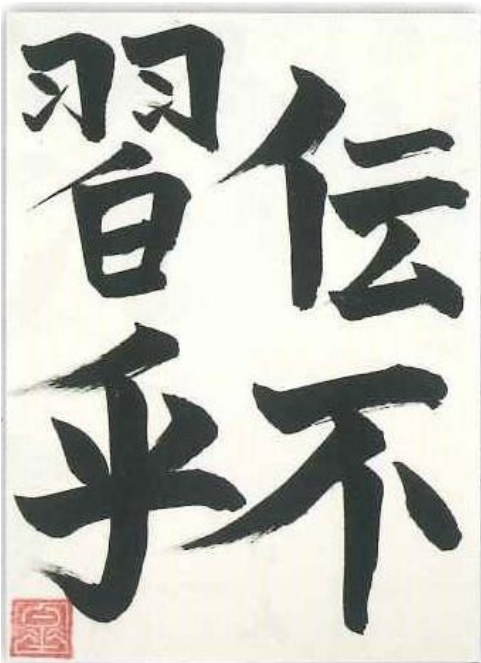 伝不
習乎